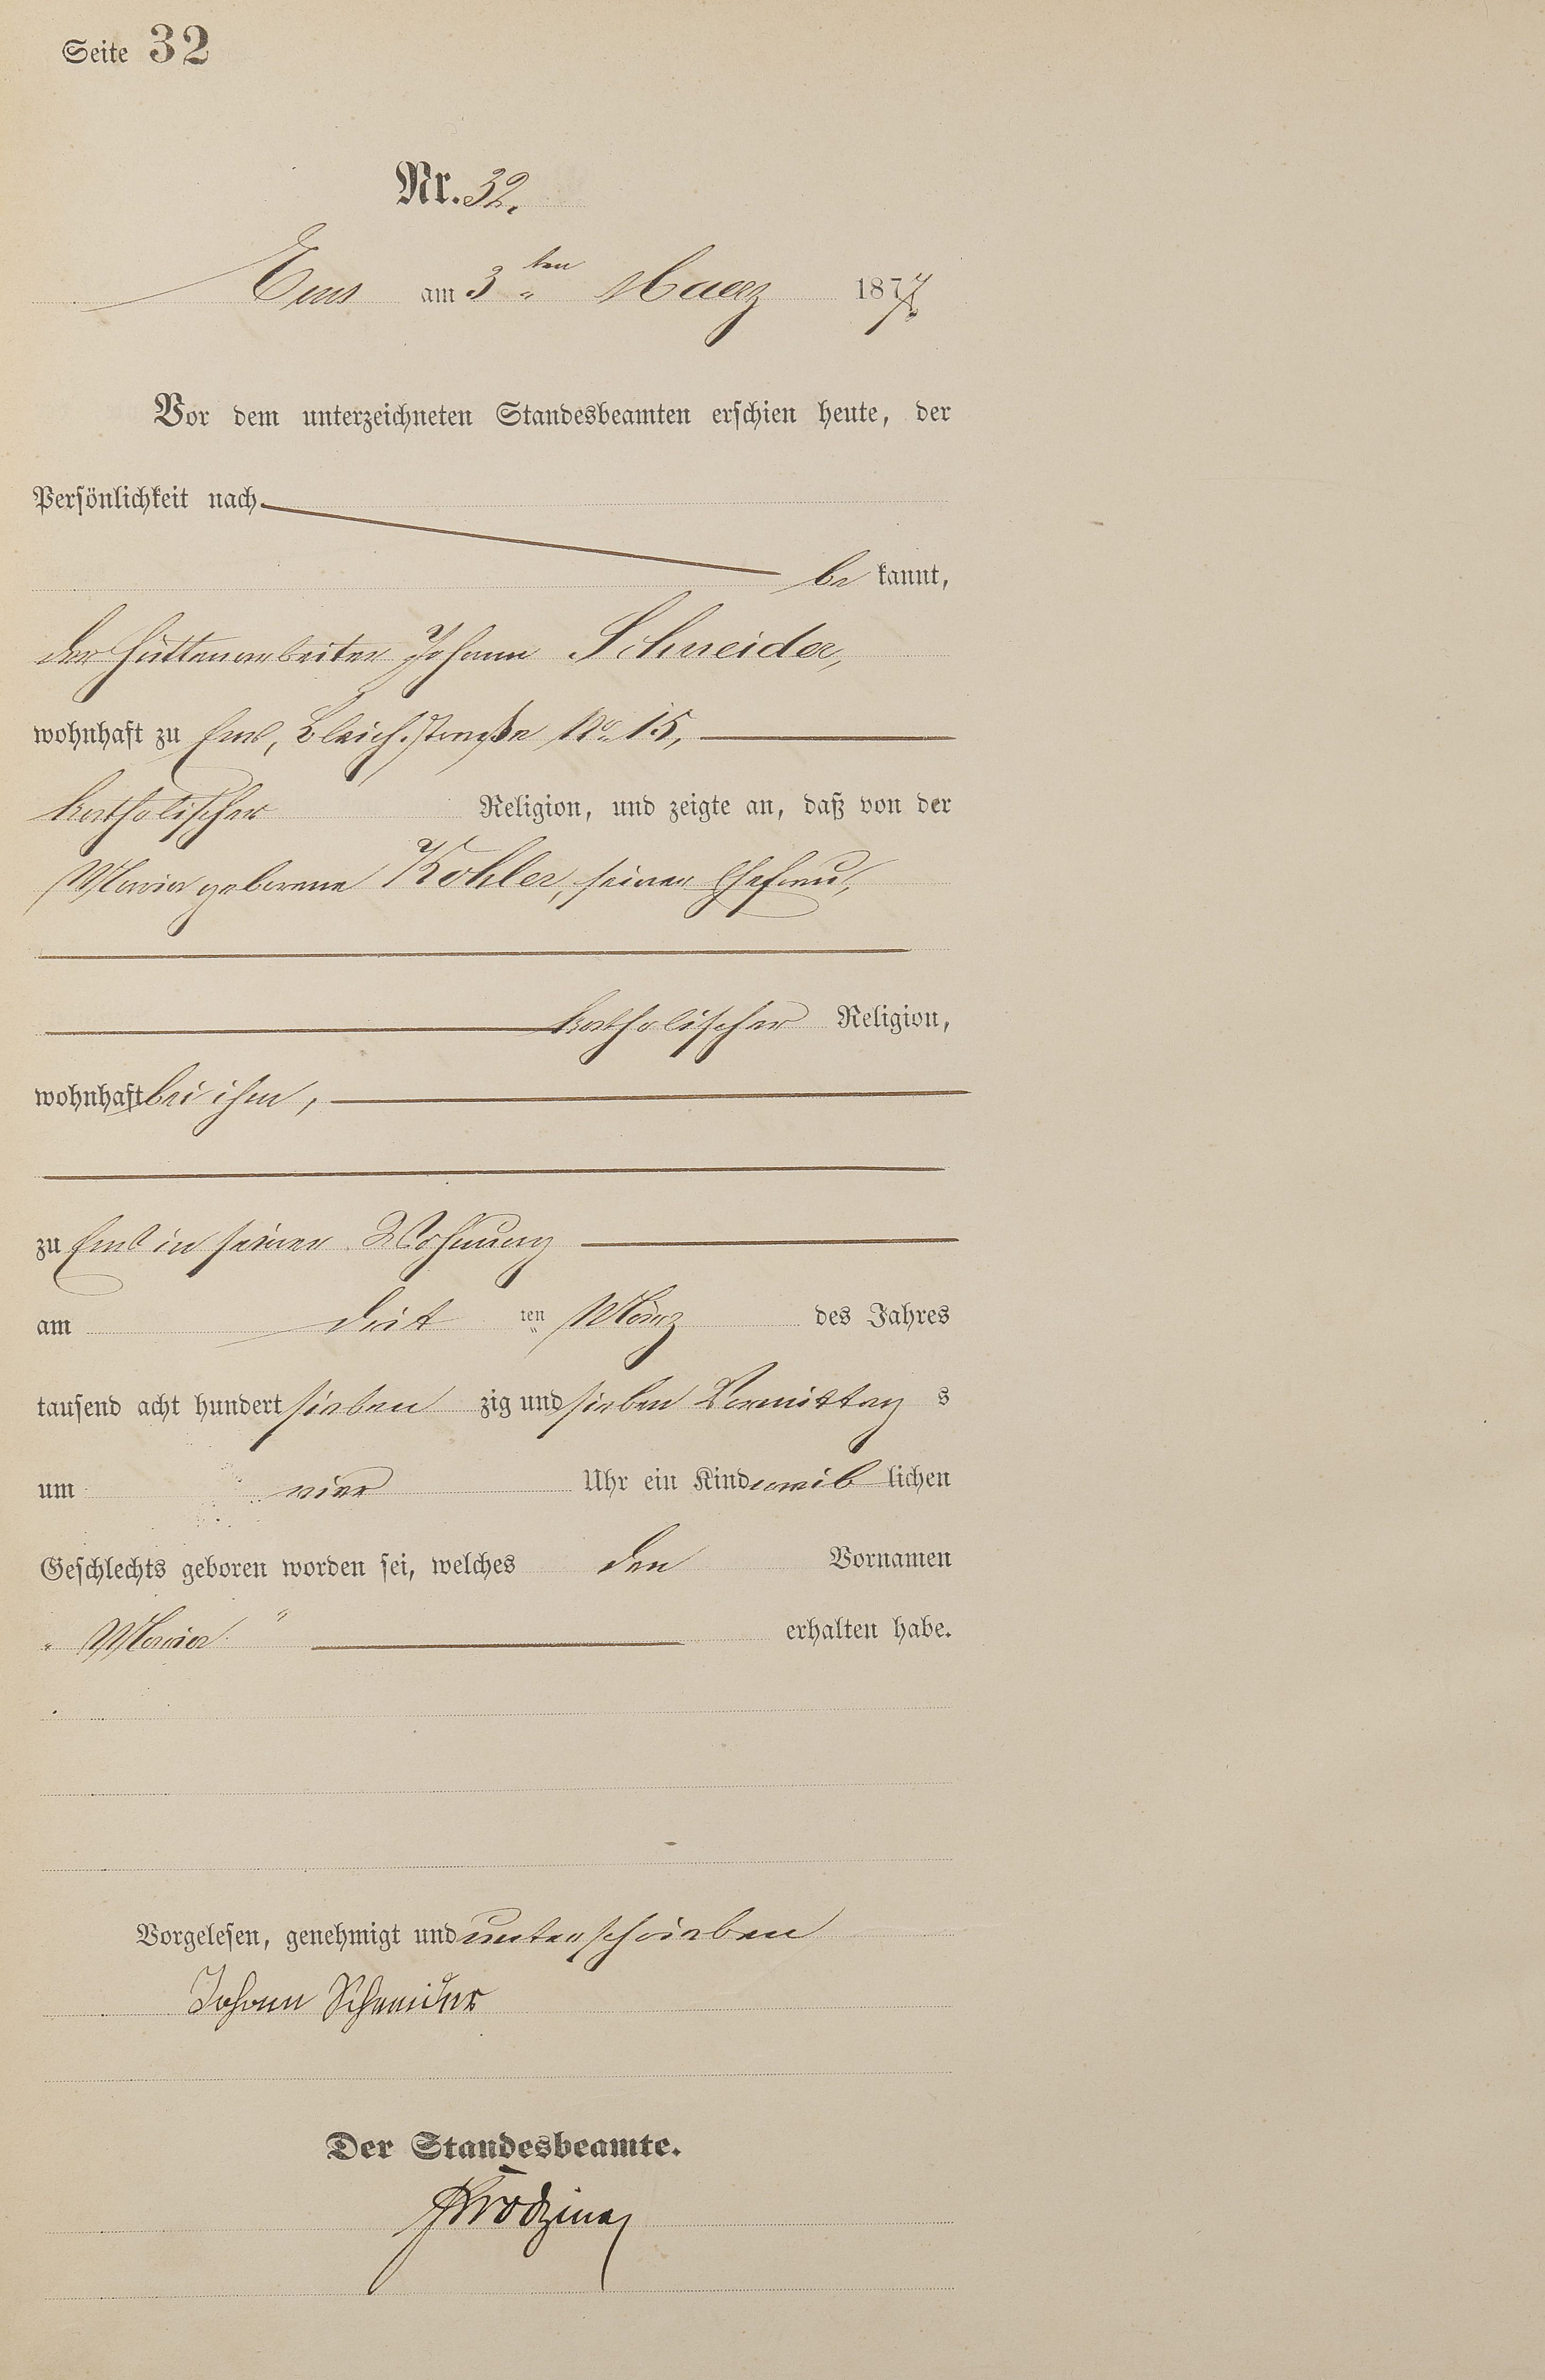 Seite 32
Nr. 32.
Ems am 3ten Maerz 1877.
Vor dem unterzeichneten Standesbeamten erschien heute, der
Persönlichkeit nach
bekannt,
der Hüttenarbeiter Johann Schneider,
wohnhaft zu Ems, Bleichstraße No 15,
katholischer Religion, und zeigte an, daß von der
Maria geborene Kohler, seiner Ehefrau,
katholischer Religion,
wohnhaft bei ihm,
zu Ems in seiner Wohnung
am dritten März des Jahres
tausend acht hundert siebenzig und sieben Vormittags
um vier Uhr ein Kind weiblichen
Geschlechts geboren worden sei, welches den Vornamen
"Maria" erhalten habe.
Vorgelesen, genehmigt und unterschrieben
Johann Schneider
Der Standesbeamte.